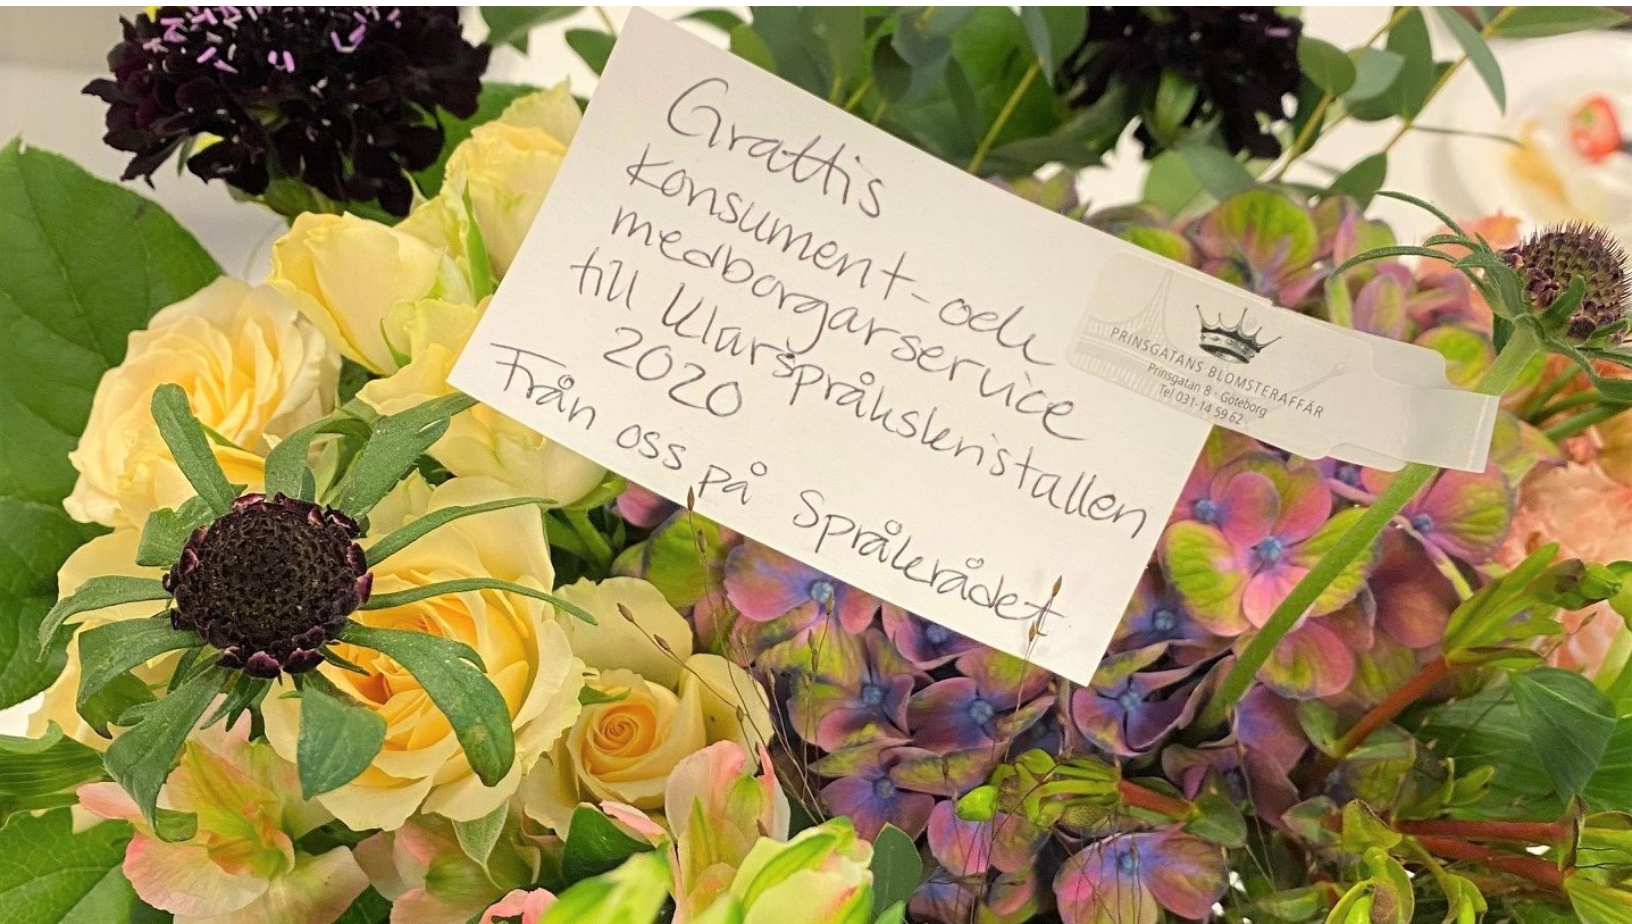 Grattis
Konsument- och
medborgarservice
till Klarspråkskristallen
2020
Från oss på Språkrådet
PRINSGATANS BLOMSTERAFFÄR
Prinsgatan 8 - Göteborg
Tel 031-14 59 62